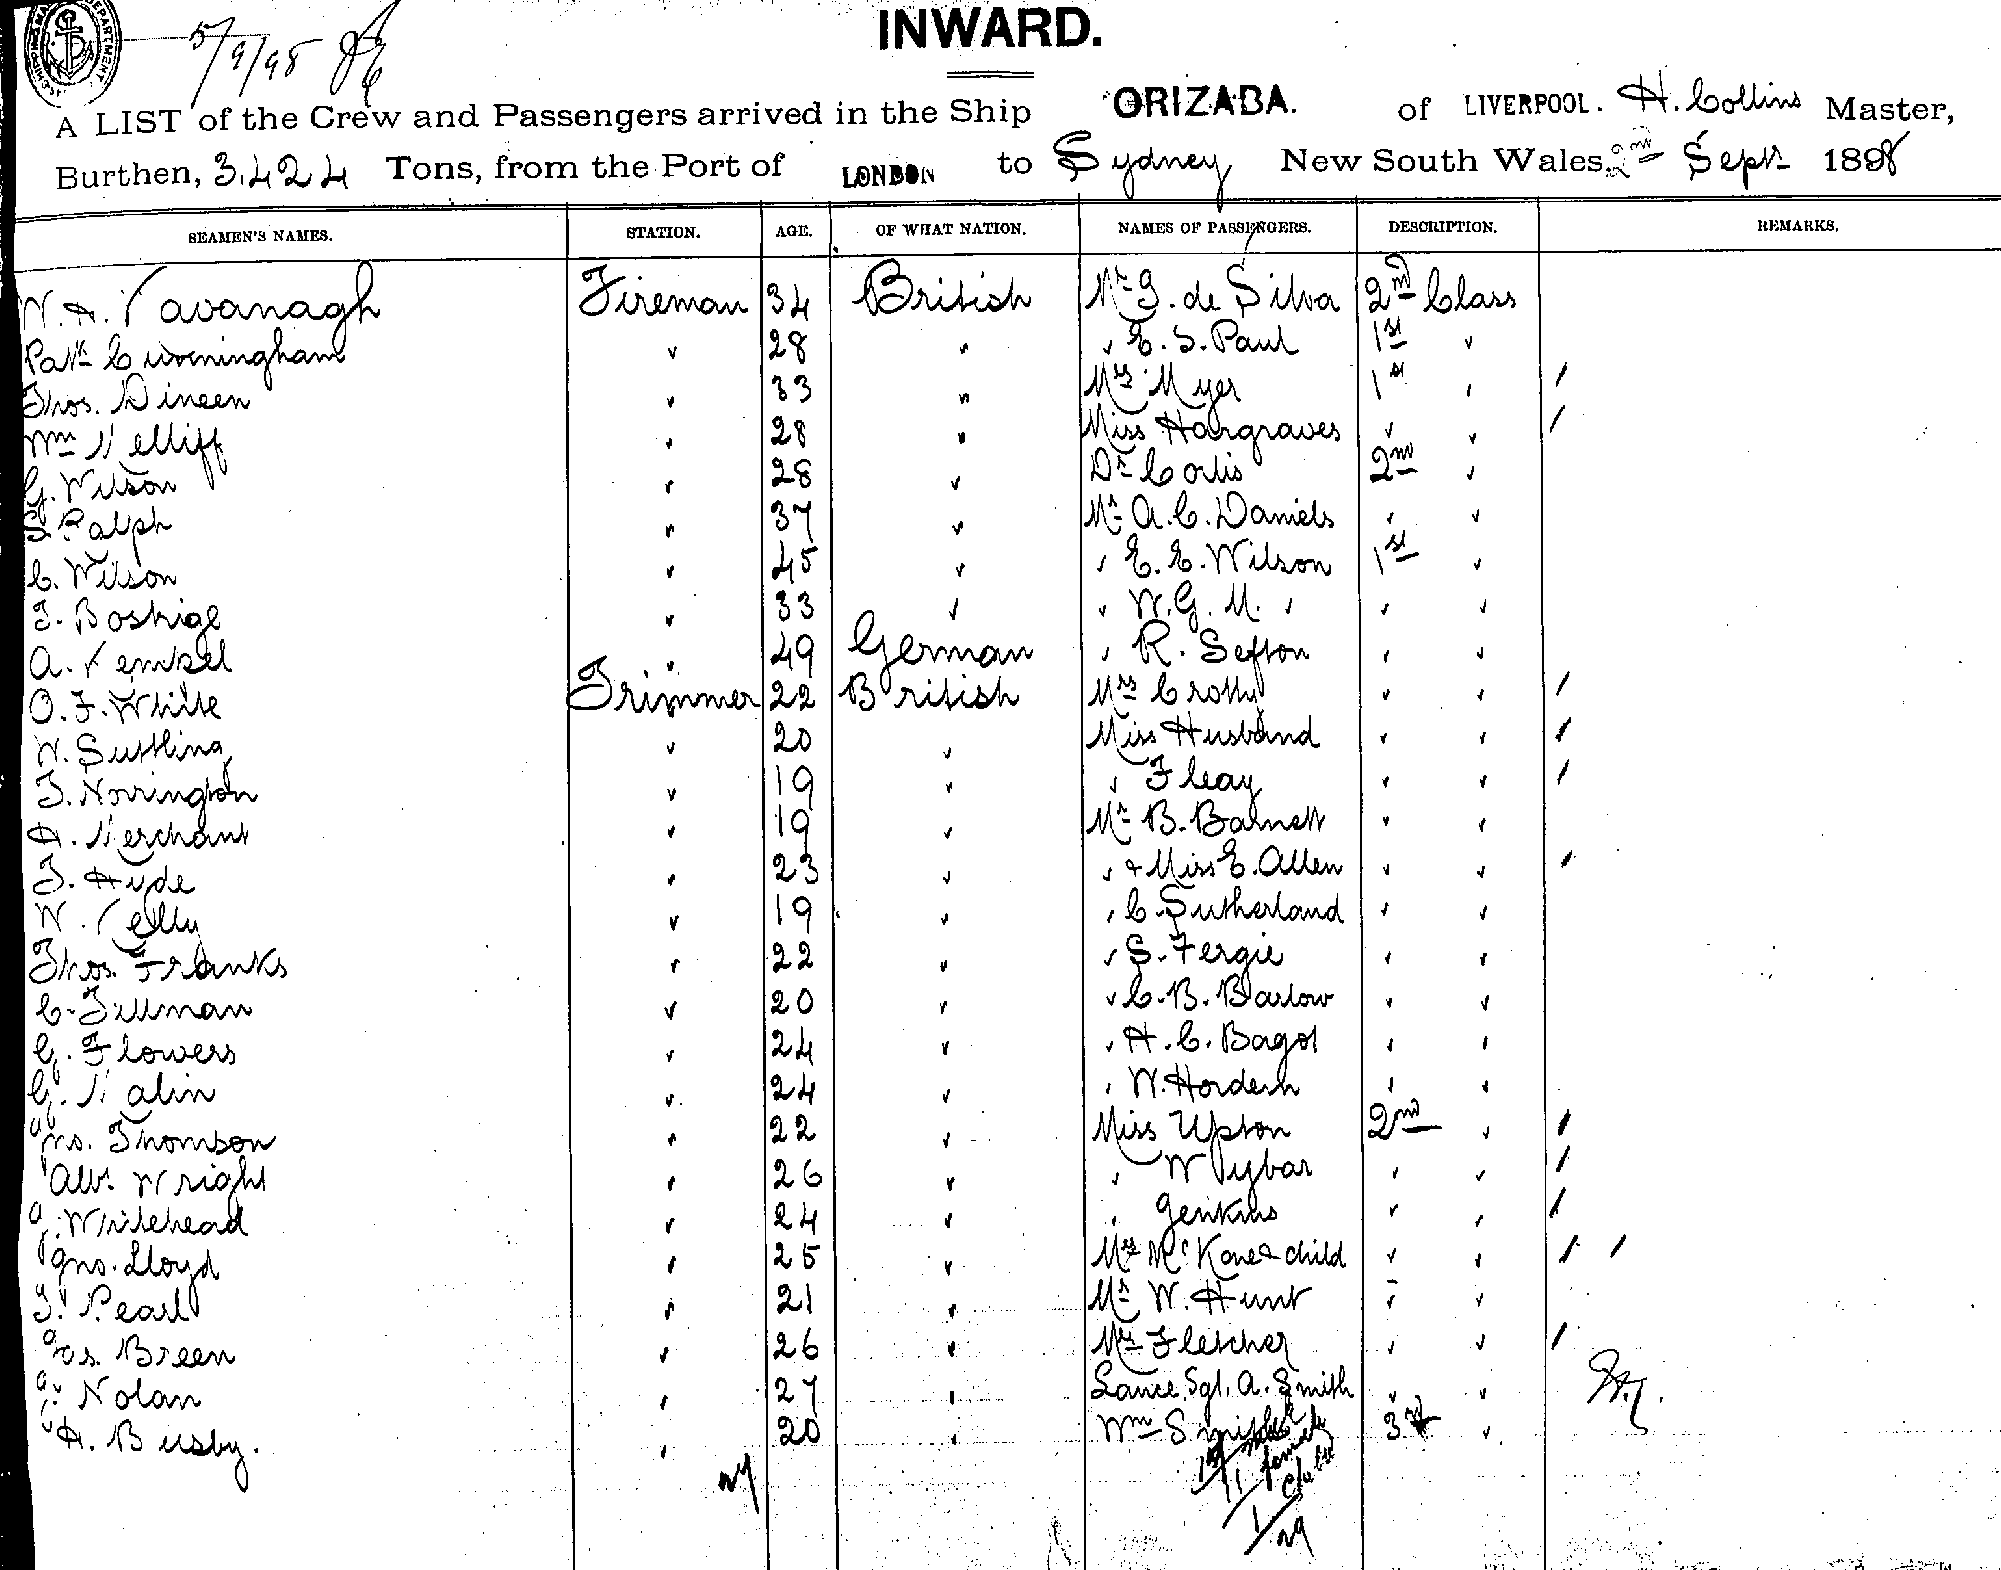 5/9/98
INWARD.
A LIST of the Crew and Passengers arrived in the Ship ORIZABA. of LIVERPOOL. H. Collins Master,
Burthen, 3.424 Tons, from the Port of LONDON to Sydney New South Wales, 2nd Sept 1898
SEAMEN'S NAMES. STATION. AGE. OF WHAT NATION. NAMES OF PASSENGERS. DESCRIPTION. REMARKS.
W. H. Kavanagh Fireman 34 British Mr. G. de Silva 2nd Class
Patk Cunningham " 28 " " E. S. Paul 1st "
Thos. Dineen " 33 " Mrs Myer 1st " /
Wm Kelliff " 28 " Miss Hargraves " " /
G. Wilson " 28 " Dr Cortis 2nd "
S. Ralph " 37 " Mr A. C. Daniels " "
C. Wilson " 45 " " E. E. Wilson 1st "
T. Boshige " 33 " " W. G. M. " " "
A. Kemkel " 49 German " R. Sefton " "
O. F. White Trimmer 22 British Mrs Crotty " " /
W. Suttling " 20 " Miss Husband " " /
T. Norrington " 19 " " Fleay " " /
A. Merchant " 19 " Mr B. Barnett " "
T. Hyde " 23 " " & Miss E. Allen " " /
W. Kelly " 19 " " C. Sutherland " "
Thos. Franks " 22 " " S. Fergie " "
C. Tillman " 20 " " C. B. Barlow " "
G. Flowers " 24 " " H. C. Bagot " "
G. Malin " 24 " " W. Hordern " "
Jno. Thomson " 22 " Miss Upton 2nd " /
Albt. Wright " 26 " " W Pybar " " /
J. Whitehead " 24 " " Jenkins " " /
Jno. Lloyd " 25 " Mrs McKone & child " " / /
T. Pearl " 21 " Mr W. Hunt " "
Jas. Breen " 26 " Mrs Fletcher " " /
J. Nolan " 27 " Lance Sgt. A. Smith " "
H. Busby. " 20 " Wm Smith 3rd "
27 17 males
11 female
1 child
29